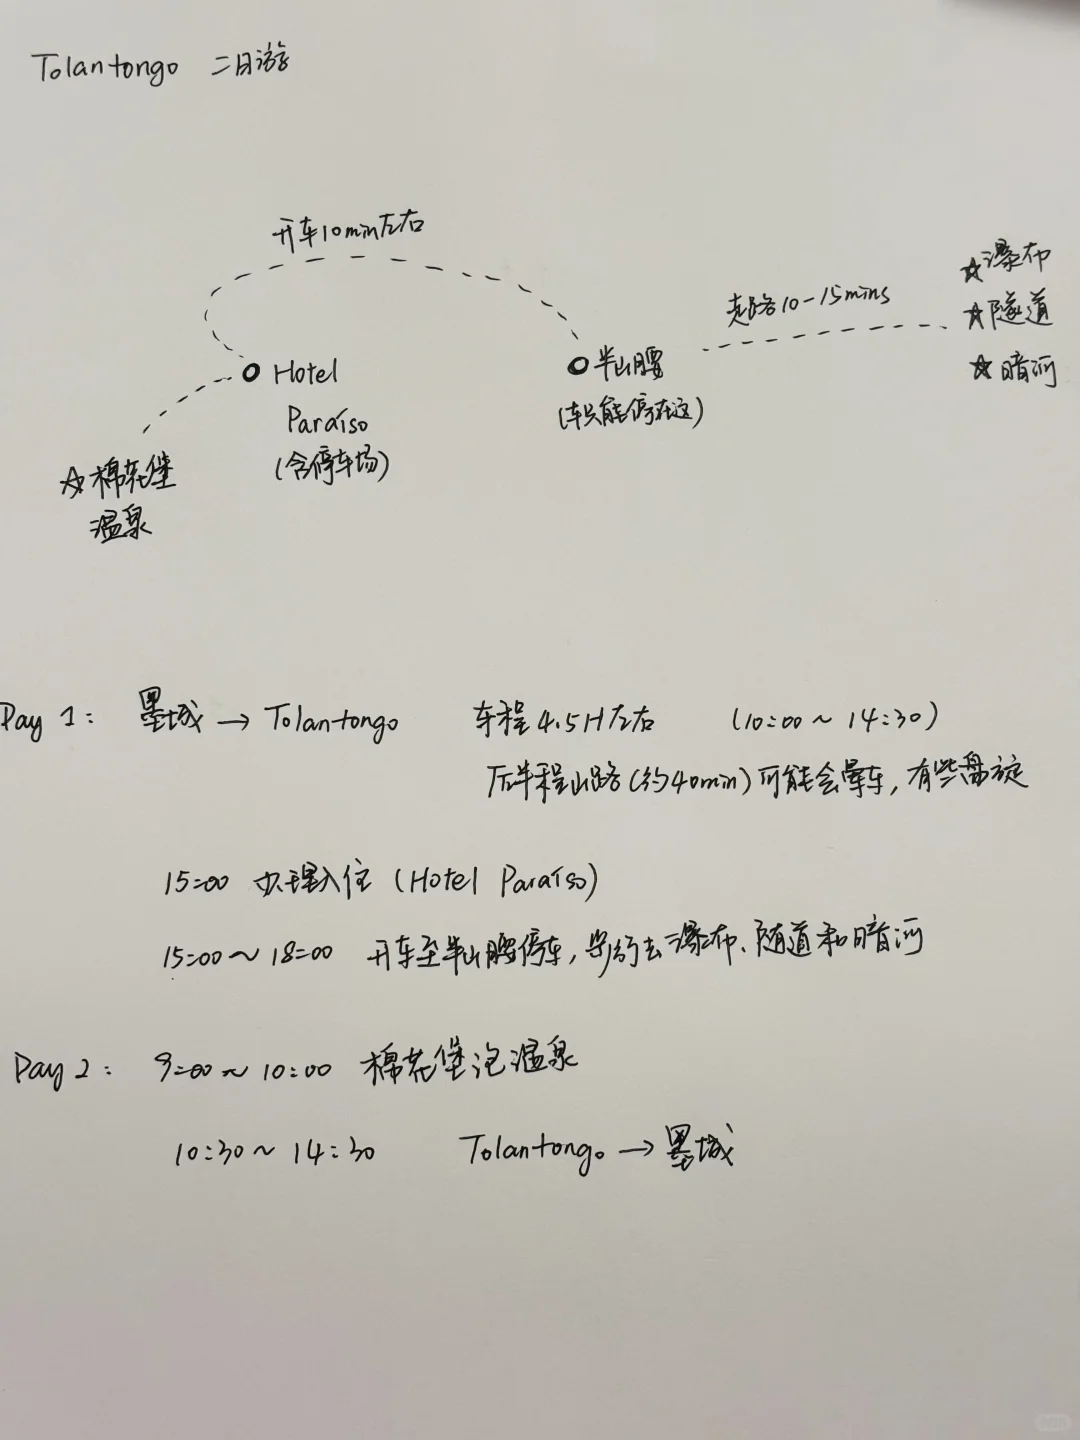 Tolantongo 二日游
开车10min左右
走路10-15mins
瀑布
隧道
暗河
Hotel
Paraíso
(含停车场)
半山腰
(车只能停在这)
棉花堡
温泉
Day 1: 墨城 → Tolantongo 车程4.5H左右 (10:00 ~ 14:30)
后半程山路(约40min)可能会晕车, 有些盘旋
15:00 办理入住 (Hotel Paraíso)
15:00 ~ 18:00 开车至半山腰停车, 步行去瀑布、隧道和暗河
Day 2: 9:00 ~ 10:00 棉花堡泡温泉
10:30 ~ 14:30 Tolantongo → 墨城